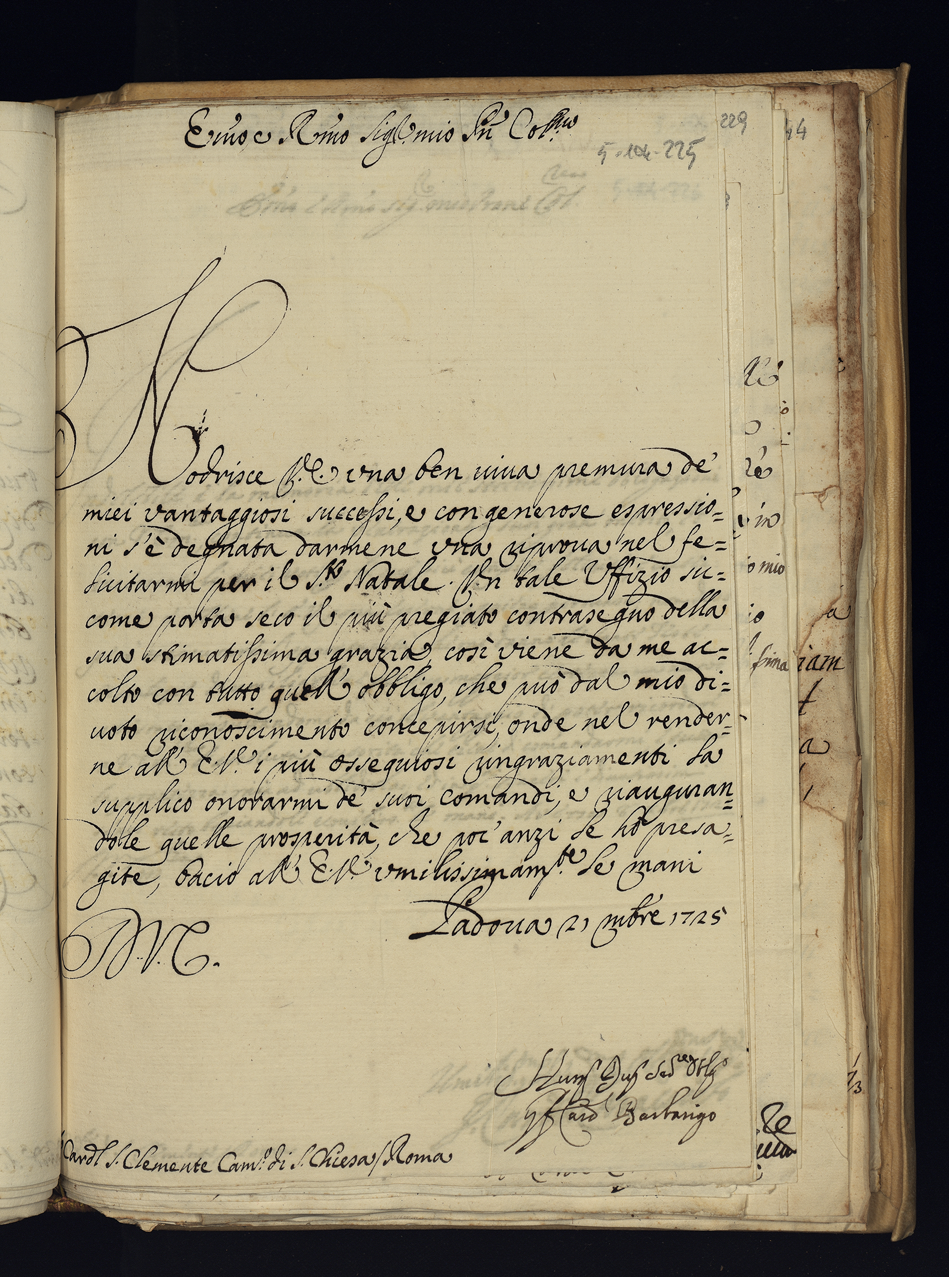 Emo, e Rmo Sigr mio Pñ Colmo
229
44
5-104-225
Nodrisce V.E. una ben viva premura de'
miei vantaggiosi successi, e con generose espressio=
ni s'è degnata darmene una riprova nel fe=
licitarmi per il Sto Natale. Un tale Uffizio sic=
come porta seco il più pregiato contrasegno della
sua stimatissima grazia, così viene da me ac=
colto con tutto quell'obbligo, che può dal mio di=
voto riconoscimento concepirsi, onde nel render=
ne all'E.V. i più ossequiosi ringraziamenti la
supplico onorarmi de' suoi comandi, e riauguran=
dole quelle prosperità, che poc'anzi le hò presa=
gite, bacio all'E.V. umilissimamte le mani
Padova 21 mbre 1725
D.V.E.
Card. Barbarigo
Cardl S. Clemente Camo di S. Chiesa / Roma